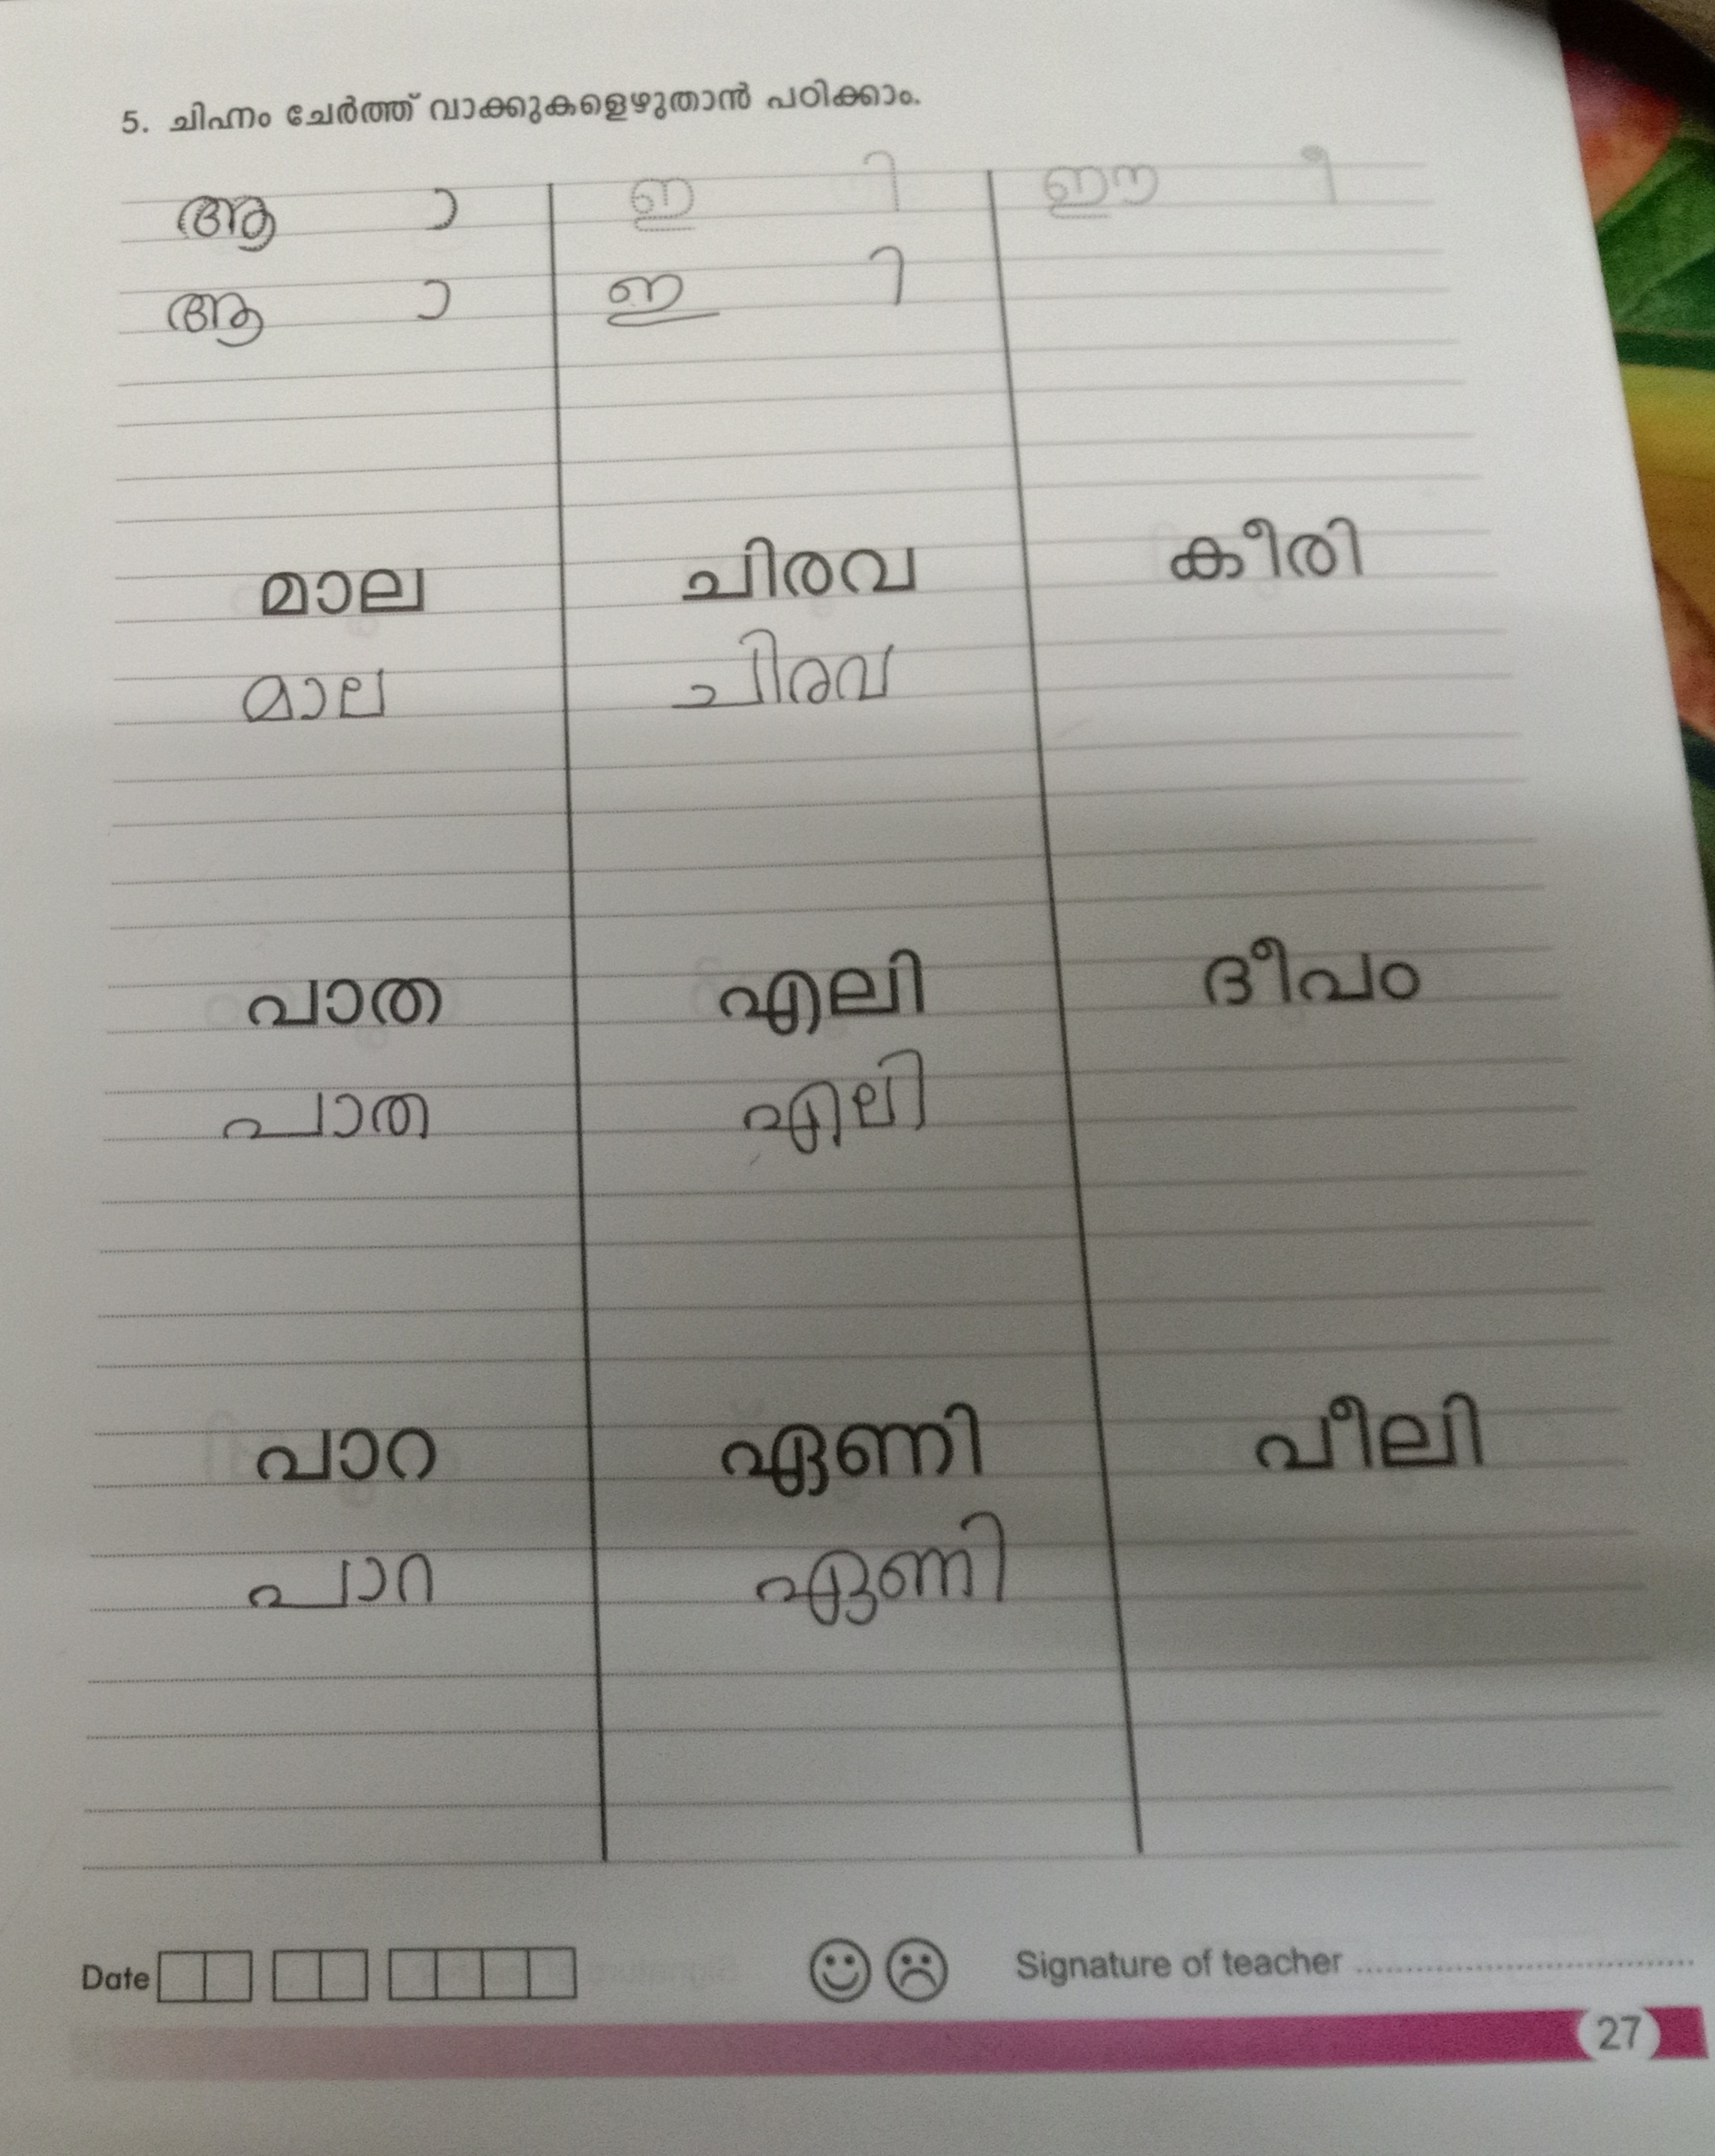 5. ചിഹ്നം ചേർത്ത് വാക്കുകളെഴുതാൻ പഠിക്കാം.
ആ ാ ഇ ി ഈ ീ
ആ ാ ഇ ി
മാല ചിരവ കീരി
മാല ചിരവ
പാത എലി ദീപം
പാത എലി
പാറ ഏണി പീലി
പാറ ഏണി
Date Signature of teacher
27